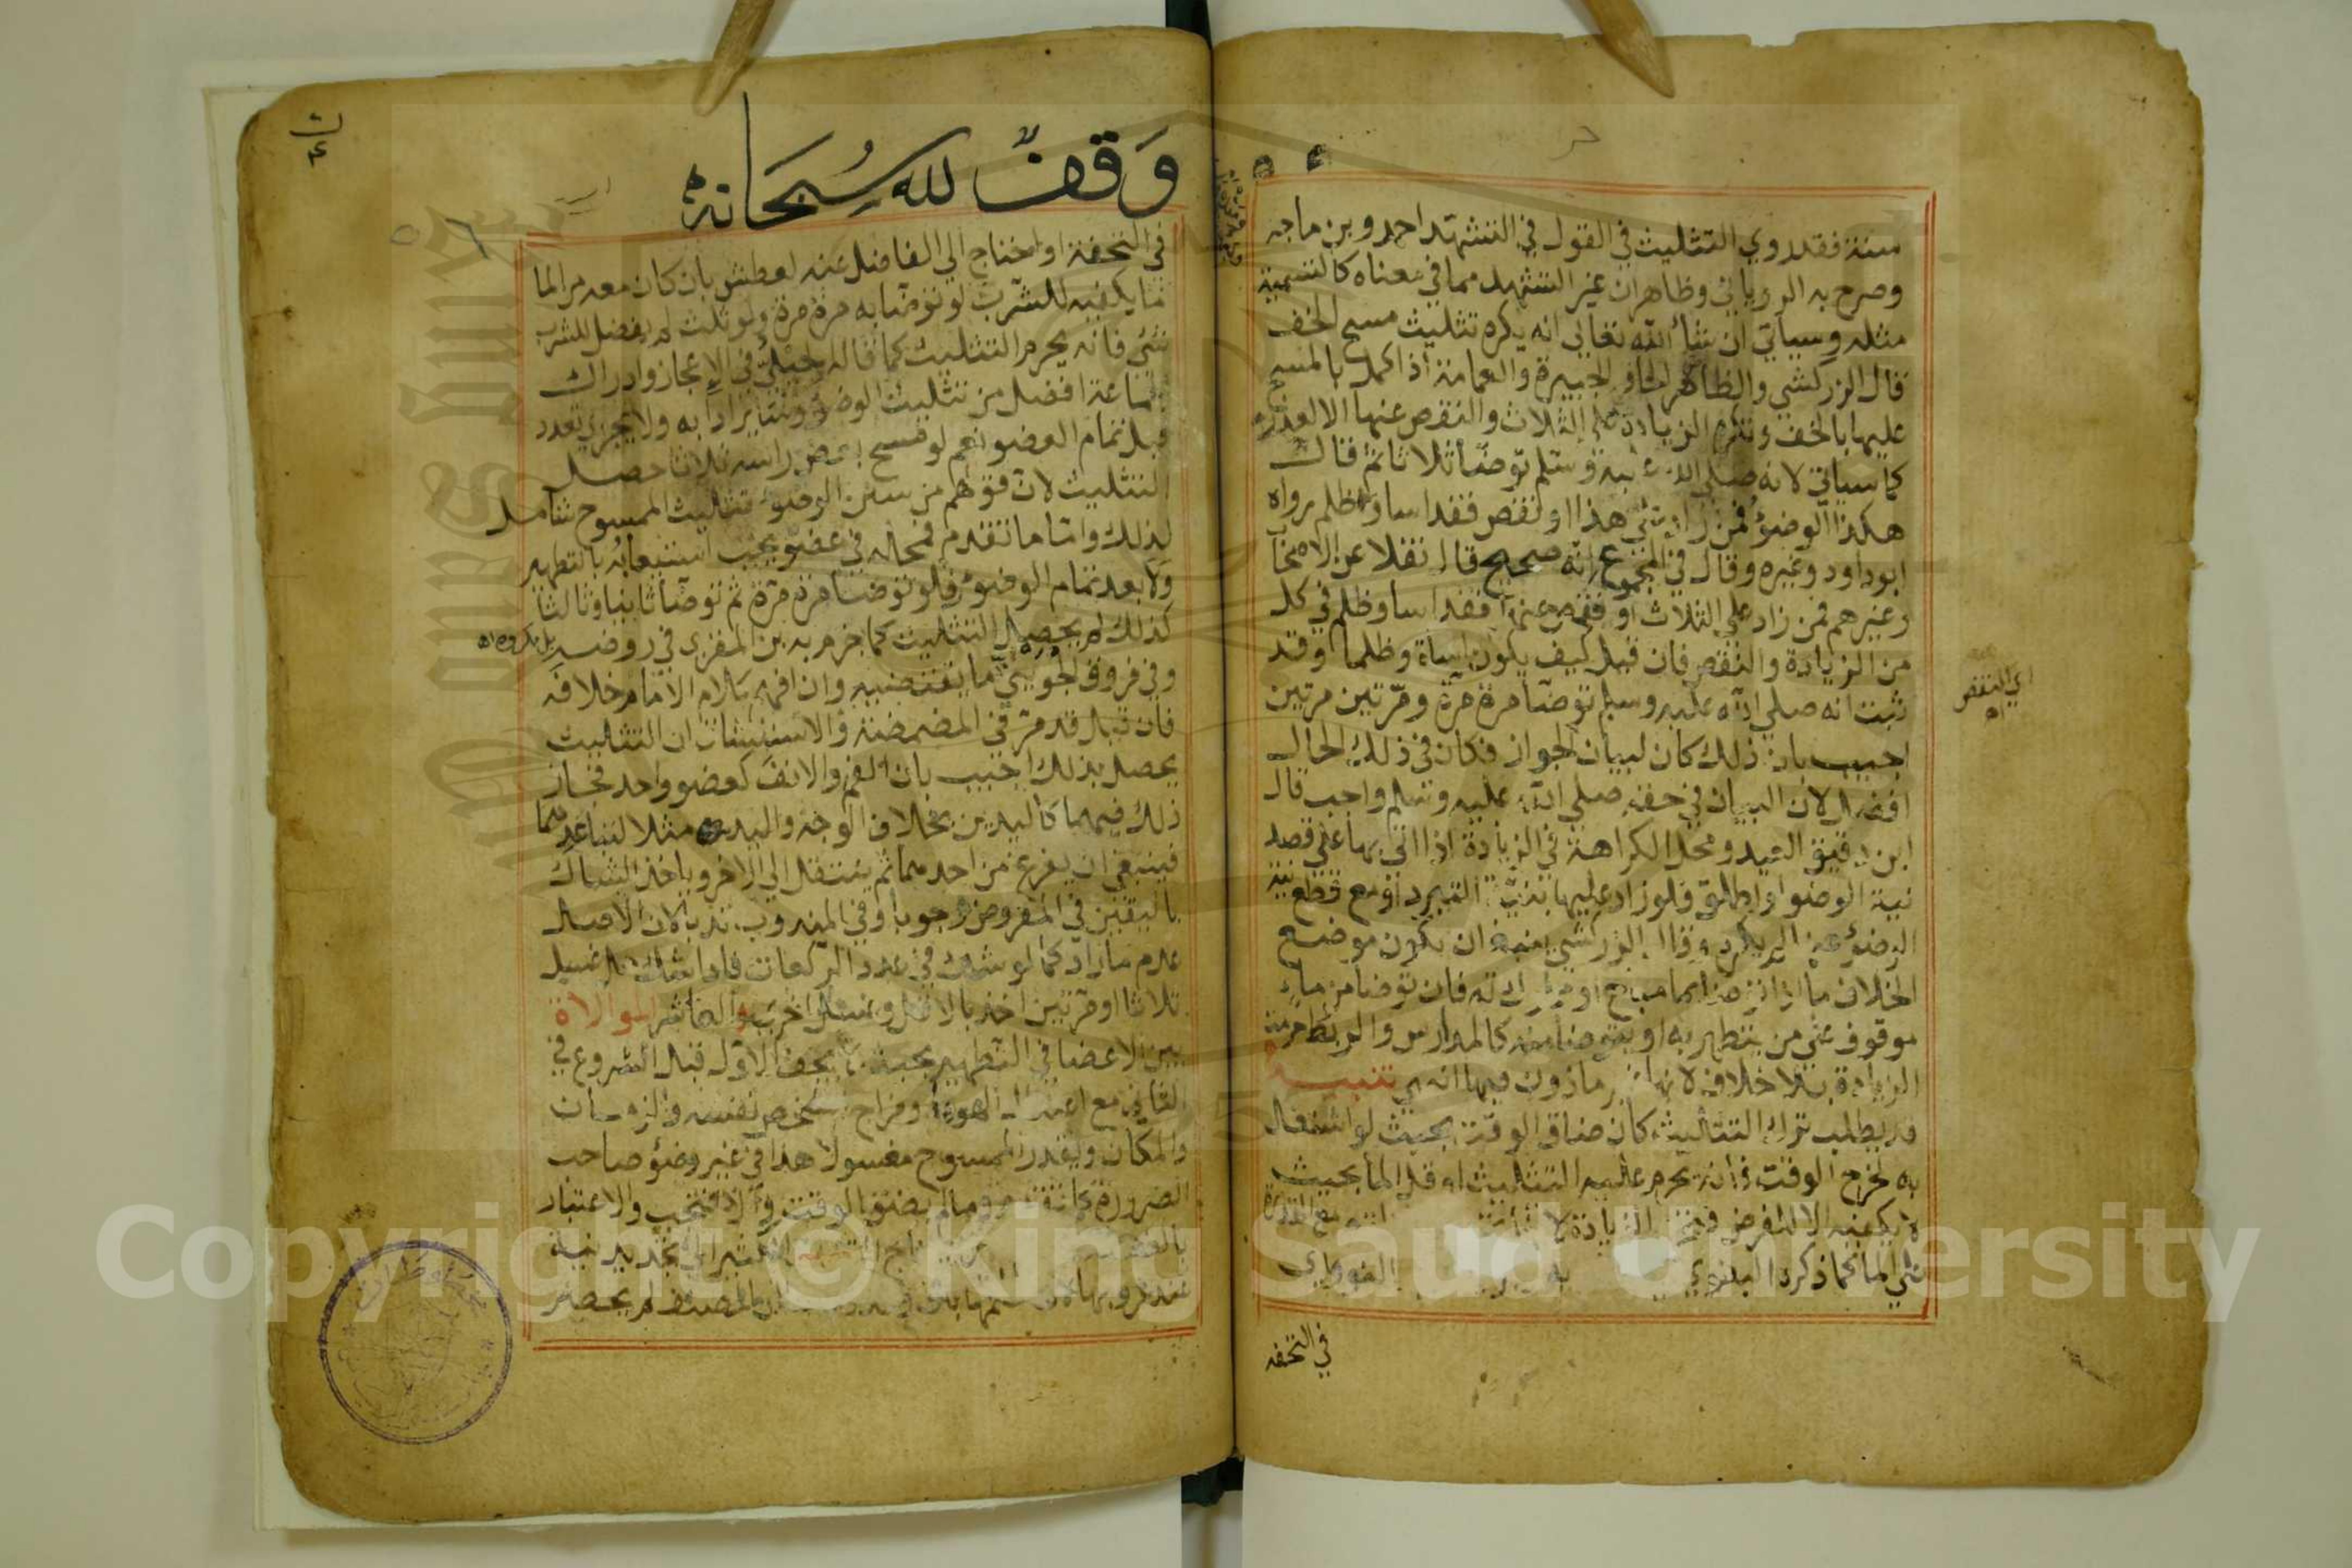 سنة فقد روي التثليث في القول في التشهد احمد وبن ماجه
وصرح به الروياني وظاهر ان غير التشهد مما في معناه كالتسمية
مثله وسياتي ان شاء الله تعالى انه يكره تثليث مسح الخف
قال الزركشي والظاهر الحاق الجبيرة والعمامة اذا كمل بالمسح
عليها بالخف وتكره الزيادة على الثلاث والنقص عنها الا لعذر
كما سياتي لانه صلى الله عليه وسلم توضأ ثلاثا ثم قال
هكذا الوضوء فمن زاد على هذا او نقص فقد اسا وظلم رواه
ابو داود وغيره وقال في المجموع انه صحيح قال نقلا عن الاصحاب
وغيرهم فمن زاد على الثلاث او نقص عنها فقد اسا وظلم في كل
من الزيادة والنقص فان قيل كيف يكون اساة وظلما وقد
ثبت انه صلى الله عليه وسلم توضأ مرة مرة ومرتين مرتين
اجيب بان ذلك كان لبيان الجواز فكان في ذلك الحال
افضل لان البيان في حقه صلى الله عليه وسلم واجب قال
ابن دقيق العيد ومحل الكراهة في الزيادة اذا اتي بها على قصد
نية الوضوا واطلق فلو زاد عليها بنية التبرد او مع قطع نية
الوضوء عنها لم يكره وقال الزركشي ينبغي ان يكون موضع
الخلاف ما اذا توضا بماء مباح او مملوك له فان توضا من ماء
موقوف على من يتطهر به او يتوضا منه كالمدارس والربط حرمت
الزيادة بلا خلاف لانها غير ماذون فيها انتهى تنبيه
قد يطلب ترك التثليث كان ضاق الوقت بحيث لو اشتغل
به لخرج الوقت فانه يحرم عليه التثليث او قل الما بحيث
لا يكفيه الا للفرض فتحرم الزيادة لانها
الما كما ذكره البغوي
في التحفه
اي النقص
وقف لله سبحانه
في التحفة او احتاج الي الفاضل عنه لعطش بان كان معه من الما
ما يكفيه للشرب لو توضا به مرة مرة ولو ثلث لم يفضل للشرب
شي فانه يحرم التثليث كما قاله الجيلي في الاعجاز وادراك
الجماعة افضل من تثليث الوضوء وسائر ادابه ولا يجزي تعدد
قبل تمام العضو نعم لو مسح بعض راسه ثلاثا حصل
التثليث لان قولهم من سنن الوضوء تثليث الممسوح شامل
لذلك واما ما تقدم فمحله في عضو يجب استيعابه بالتطهير
ولا بعد تمام الوضوء فلو توضا مرة مرة ثم توضا ثانيا وثالثا
كذلك لم يحصل التثليث كما جزم به بن المقري في روضه
وفي فروق الجويني ما يقتضيه وان افهم كلام الامام خلافه
فان قيل قد مر في المضمضة والاستنشاق ان التثليث
يحصل بذلك اجيب بان الفم والانف كعضو واحد فجاز
ذلك فيهما كاليدين بخلاف الوجه واليد مثلا لتباعدهما
فينبغي ان يفرغ من احدهما ثم ينتقل الي الاخر وياخذ الشاك
باليقين في المفروض وجوبا وفي المندوب ندبا لان الاصل
عدم ما زاد كما لو شك في عدد الركعات فاذا شك هل غسل
ثلاثا او مرتين اخذ بالاقل وغسل اخرى والعاشر الموالاة
بين الاعضا في التطهير بحيث لا يجف الاول قبل الشروع في
الثاني مع اعتدال الهواء ومزاج الشخص نفسه والزمان
والمكان ويقدر الممسوح مغسولا هذا في غير وضوء صاحب
الضرورة كما تقدم وما لم يضق الوقت والا فتجب والاعتبار